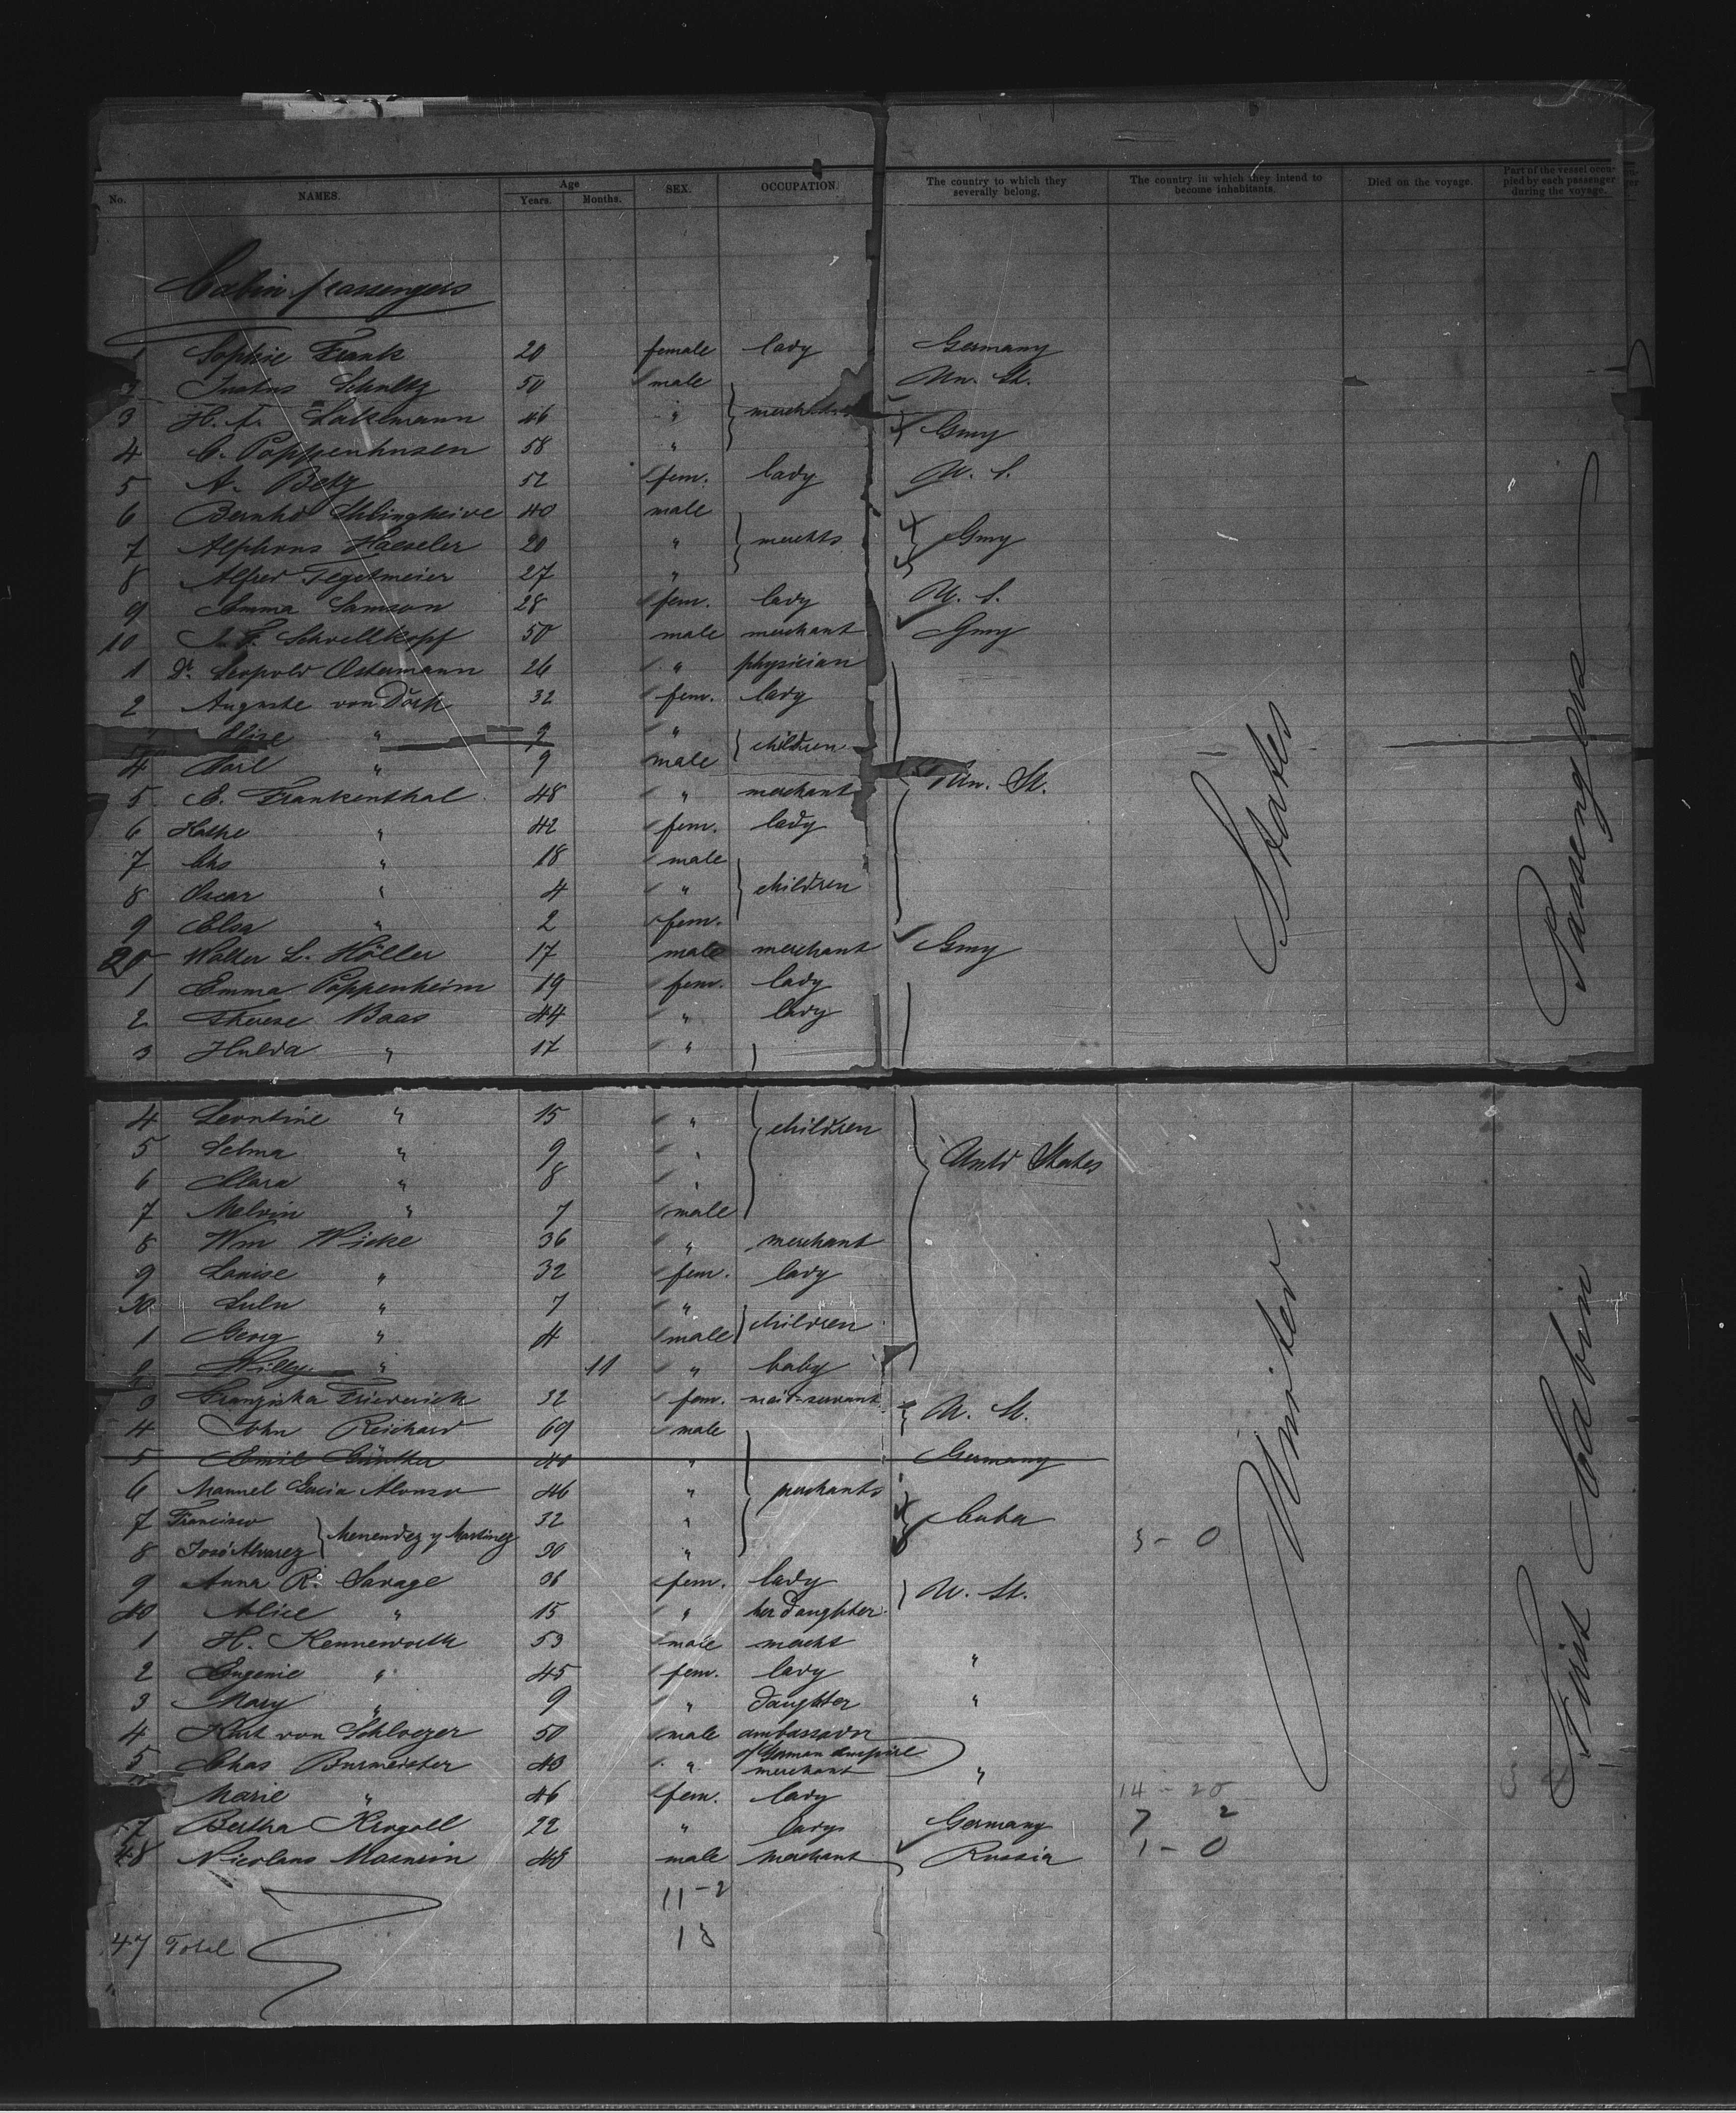 No. NAMES. Age Years. Months. SEX. OCCUPATION. The country to which they severally belong. The country in which they intend to become inhabitants. Died on the voyage. Part of the vessel occupied by each passenger during the voyage.
Cabin passengers
1 Sophie Frank 20 female lady Germany
2 Justus Schultz 50 male Un. St.
3 H. F. 46 " } merchants
4 C. Poppenhusen 58 " Gmy
5 A. Betz 52 fem. lady U. S.
6 Bernhd 40 male
7 Alphons Haeseler 20 " } merchts } Gmy
8 Alfred Tegetmeier 27 "
9 Emma Samson 28 fem. lady U. S.
10 J. F. Schoellkopf 50 male merchant Gmy
1 Dr. Leopold Ostermann 26 " physician
2 Auguste von Dörk 32 fem. lady
Elise " 9 "
4 Karl " 9 male } children
5 E. Frankenthal 48 " merchant Un. St.
6 " 42 fem. lady
7 Chs " 18 male
8 Oscar " 4 " } children
9 Elsa " 2 fem.
20 Walter L. Höller 17 male merchant Gmy
1 Emma Poppenheim 19 fem. lady
2 Therese Baas 44 " lady
3 Hulda " 17 "
4 Leontine " 15 " } children
5 Selma " 9 " Untd States
6 Clara " 8 "
7 Melvin " 7 male
8 Wm Wicke 36 " merchant
9 Louise " 32 fem. lady
30 Lulu " 7 "
1 Georg " 4 male } children
2 Willy " 11 " baby
3 Franziska Friederich 32 fem. maid-servant
4 John Reichard 69 male U. St.
5 Emil Günther 40 " Germany
6 Manuel Garcia Alonso 46 " merchants
7 Francisco } Menendez y Martinez 32 " } Cuba
8 José Alvarez 30 " 3 - 0
9 Anna R. Savage 36 fem. lady } U. St.
40 Alice " 15 " her daughter
1 H. Kenneworth 53 male mercht
2 Eugenie " 45 fem. lady "
3 Mary " 9 " daughter "
4 Kurt von Schloezer 50 male ambassador of German Empire
5 Chas Burmeister 40 " merchant "
Marie " 46 fem. lady 14 - 20
7 Bertha 22 " lady Germany 7 2
48 Nicolaus 48 male merchant Russia 1 - 0
11-2
13
47 Total
United States
First Cabin Passengers